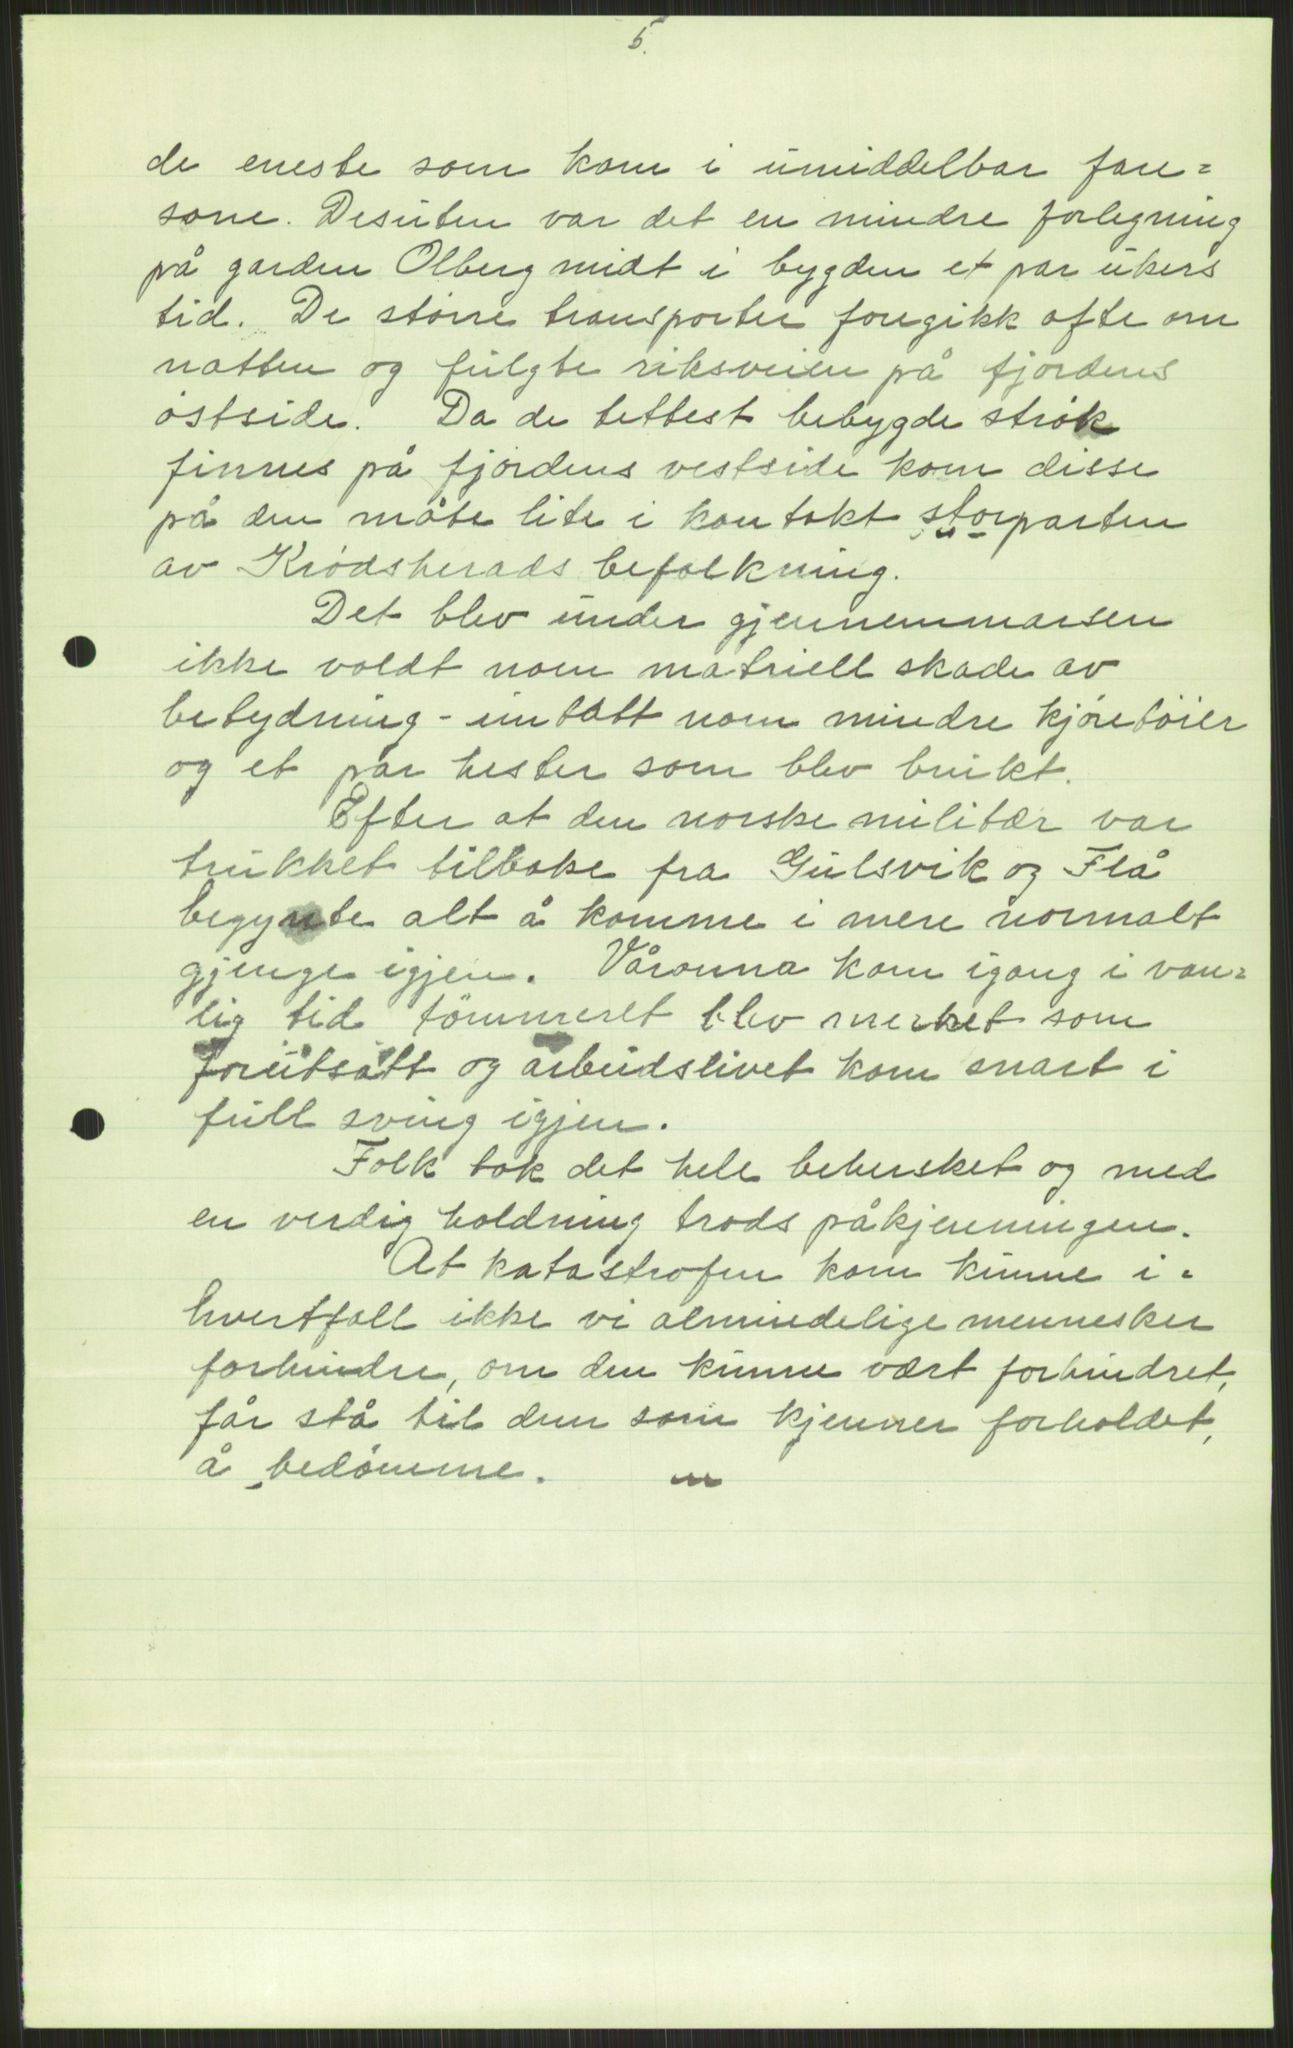 5.
de eneste som kom i umiddelbar fare=
sone. Desuten var det en mindre forlegning
på garden Olberg midt i bygden et par ukers
tid. De större transporter foregikk ofte om
natten og fulgte riksveien på fjordens
östside. Da de tettest bebygde strök
finnes på fjordens vestside kom disse
på den måte lite i kontakt storparten
av Krödsherads befolkning.
Det blev under gjennemmarsen
ikke voldt noen matriell skade av
betydning - untatt noen mindre kjöretöier
og et par hester som blev brukt.
Efter at den norske militær var
trukket tilbake fra Gulsvik og Flå
begynte alt å komme i mere normalt
gjenge igjen. Våronna kom igang i van=
lig tid tömmeret blev merket som
forutsatt og arbeidslivet kom snart i
full sving igjen.
Folk tok det hele behersket og med
en verdig holdning trods påkjenningen.
At katastrofen kom kunne i=
hvertfall ikke vi almindelige mennesker
forhindre, om den kunne vært forhindret,
får stå til dem som kjenner forholdet,
å bedömme.